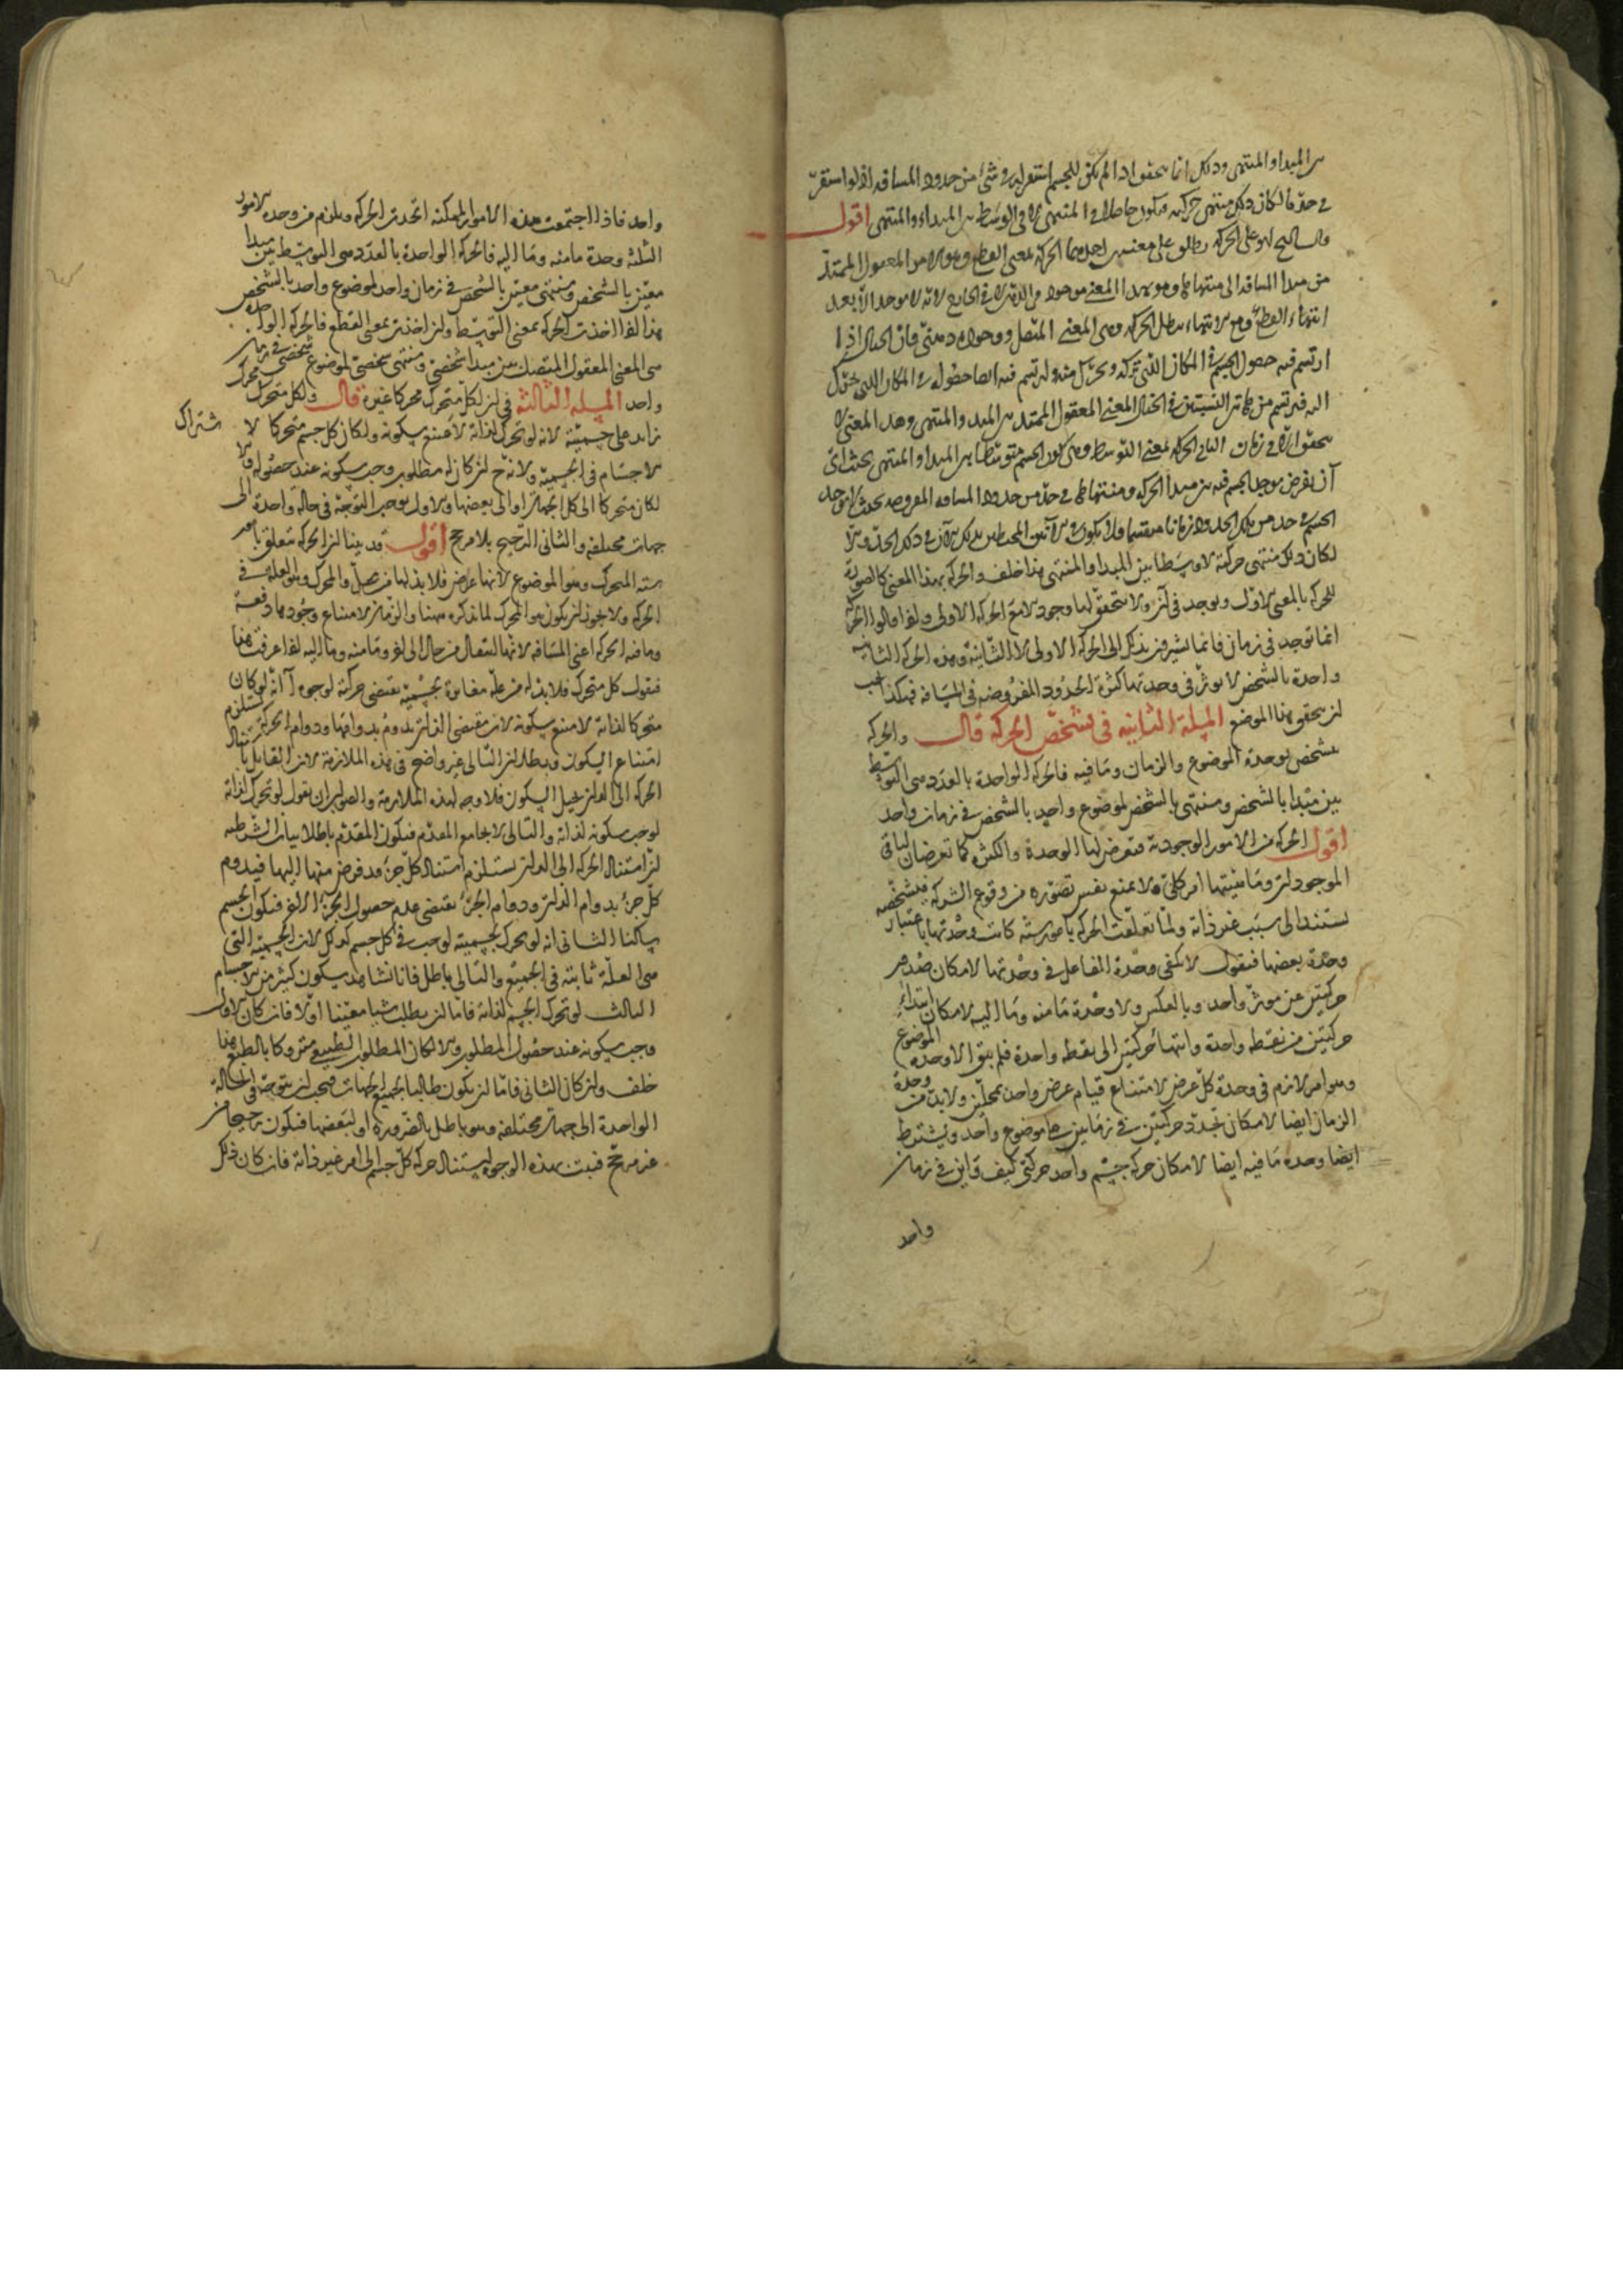 بين المبدا والمنتهى وذلك انما يتحقق اذا لم يكن للجسم استقرار في شئ من حدود المسافه اذ لو استقر
في حد ما لكان ذلك منتهى حركته فيكون حاصلا في المنتهى لا في الوسط بين المبداء والمنتهى اقول
قال الشيخ الحركه يطلق على معنيين احدهما الحركه بمعنى القطع وهو الامر المعقول الممتد
من مبدا المسافه الى منتهاها وهو بهذا المعنى موجود في الذهن لا في الخارج لانه لا يوجد الا بعد
انتهاء القطع ومع الانتهاء يبطل الحركه وهي المعنى المتصل ووجوده ذهني فان الخيال اذا
ارتسم فيه حصول الجسم في المكان الذي تركه وتحرك منه ولم يرتسم فيه ايضا حصوله في المكان الذي تحرك
اليه فيرتسم من هاتين النسبتين في الخيال المعنى المعقول الممتد بين المبدا والمنتهى وهذا المعنى لا
يتحقق الا في زمان الثاني الحركه بمعنى التوسط وهي كون الجسم متوسطا بين المبدا والمنتهى بحيث اي
آن يفرض يوجد الجسم فيه بين مبدا الحركه ومنتهاها في حد من حدود المسافه المفروضه بحيث لا يوجد
الجسم في حد من تلك الحدود زمانا
لكان ذلك منتهى حركته لا وسطا بين المبدا والمنتهى هذا خلف والحركه بهذا المعنى كالصورة
للحركه بالمعنى الاول ويوجد في آن ولا يتحقق لها وجود الا مع الحركه الاولى ولهذا قالوا الحركه
انما توجد في زمان فانما يشيرون بذلك الى الحركه الاولى لا الثانيه وهذه الحركه الثانيه
واحدة بالشخص لا يوثر في وحدتها كثرة الحدود المفروضه في المسافه فهكذا يجب
ان يتحقق هذا الموضع المسئلة الثانيه في تشخص الحركه قال والحركه
تشخص بوحدة الموضوع والزمان وما فيه فالحركه الواحدة بالعدد هي التوسط
بين مبدا بالشخص ومنتهى بالشخص لموضوع واحد بالشخص في زمان واحد
اقول الحركه من الامور الوجوديه فتعرض لها الوحدة والكثرة كما تعرضان لباقي
الموجودات وماهيتها امر كلي لا يمنع نفس تصوره من وقوع الشركه فتشخصه
يستند الى سبب غير ذاته ولما تعلقت الحركه بامور سته كانت وحدتها باعتبار
وحدة بعضها فنقول لا يكفي وحدة الفاعل في وحدتها لامكان صدور
حركتين عن موثر واحد وبالعكس ولا وحدة ما منه وما اليه لامكان ابتداء
حركتين من نقطه واحدة وانتهاء حركتين الى نقطه واحدة فلم يبق الا وحدة الموضوع
وهو امر لازم في وحدة كل عرض لامتناع قيام عرض واحد بمحلين ولا بد من وحدة
الزمان ايضا لامكان تجدد حركتين في زمانين على موضوع واحد ويشترط
ايضا وحدة ما فيه ايضا لامكان حركه جسم واحد حركتي كيف واين في زمان
واحد
واحد فاذا اجتمعت هذه الامور الممكنه اتحدت الحركه ويلزم من وحدة الامور
الثلثه وحدة ما منه وما اليه فالحركه الواحدة بالعدد هي التوسط بين مبدا
معين بالشخص ومنتهى معين بالشخص في زمان واحد لموضوع واحد بالشخص
هذا اذا اخذت الحركه بمعنى التوسط وان اخذت بمعنى القطع فالحركه الواحدة
هي المعنى المعقول المتصل بين مبدا شخصي ومنتهى شخصي لموضوع شخصي في زمان
واحد المسئله الثالثه في ان لكل متحرك محركا غيره قال ولكل متحرك محرك
زايد على جسميته لانه لو تحرك لذاته لامتنع سكونه ولكان كل جسم متحركا لاشتراك
الاجسام في الجسميه ولانه ح ان كان له مطلوب وجب سكونه عند حصوله والا
لكان متحركا الى كل الجهات او الى بعضها والاول يوجب التوجه في حالة واحدة الى
جهات مختلفه والثاني الترجيح بلا مرجح اقول قد بينا ان الحركه تتعلق بامور
سته المتحرك وهو الموضوع لانها عرض فلا بد لها من محل والمحرك وهو العله في
الحركه ولا يجوز ان يكون هو المتحرك لما نذكره ههنا والزمان لامتناع وجودها دفعة
وما فيه الحركه اعني المسافه لانها انتقال من حال الى اخر وما منه وما اليه اذا عرفت هذا
فنقول كل متحرك فلا بد له من علة مغايرة لجسميته تقتضي حركته لوجوه آ انه لو كان
متحركا لذاته لامتنع سكونه لان مقتضى الذات يدوم بدوامها ودوام الحركه يستلزم
امتناع السكون وبطلان التالي غير واضح في هذه الملازمة لان القايل باستناد
الحركه الى الذات يحيل السكون فلا وجه لهذه الملازمة والصواب ان يقول لو تحرك لذاته
لوجب سكونه لذاته والتالي لا يجامع المقدم فيكون المقدم باطلا بيان الشرطيه
ان استناد الحركه الى الذات يستلزم استناد كل جزء قد فرض منها اليها فيدوم
كل جزء بدوام الذات ودوام الجزء يقتضي عدم حصول الجزء الاخر فيكون الجسم
ساكنا الثاني انه لو تحرك لجسميته لوجب في كل جسم كذلك لان الجسميه التي
هي العلة ثابته في الجميع والتالي باطل فانا نشاهد سكون كثير من الاجسام
الثالث لو تحرك الجسم لذاته فاما ان يطلب شيا معينا او لا فان كان الاول
وجب سكونه عند حصول المطلوب والا لكان المطلوب الطبيعي متروكا بالطبع هذا
خلف وان كان الثاني فاما ان يكون طالبا لجميع الجهات فيجب ان يتوجه في الحالة
الواحدة الى جهات مختلفه وهو باطل بالضرورة او لبعضها فيكون ترجيحا من
غير مرجح فثبت بهذه الوجوه استناد حركه كل جسم الى امر غير ذاته فان كان ذلك